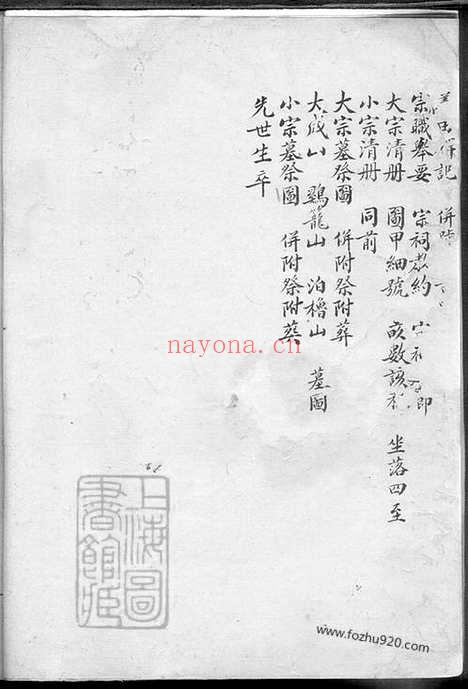 宗職舉要 宗祠
大宗清册 圖甲細號 畝數該 坐落四至
小宗清册 同前
大宗墓祭圖 併附祭附葬
大成山 鷄籠山 泊櫓山 墓圖
小宗墓祭圖 併附祭附葬
先世生卒
上海圖書館藏
nayona.cn
www.fozhu920.com